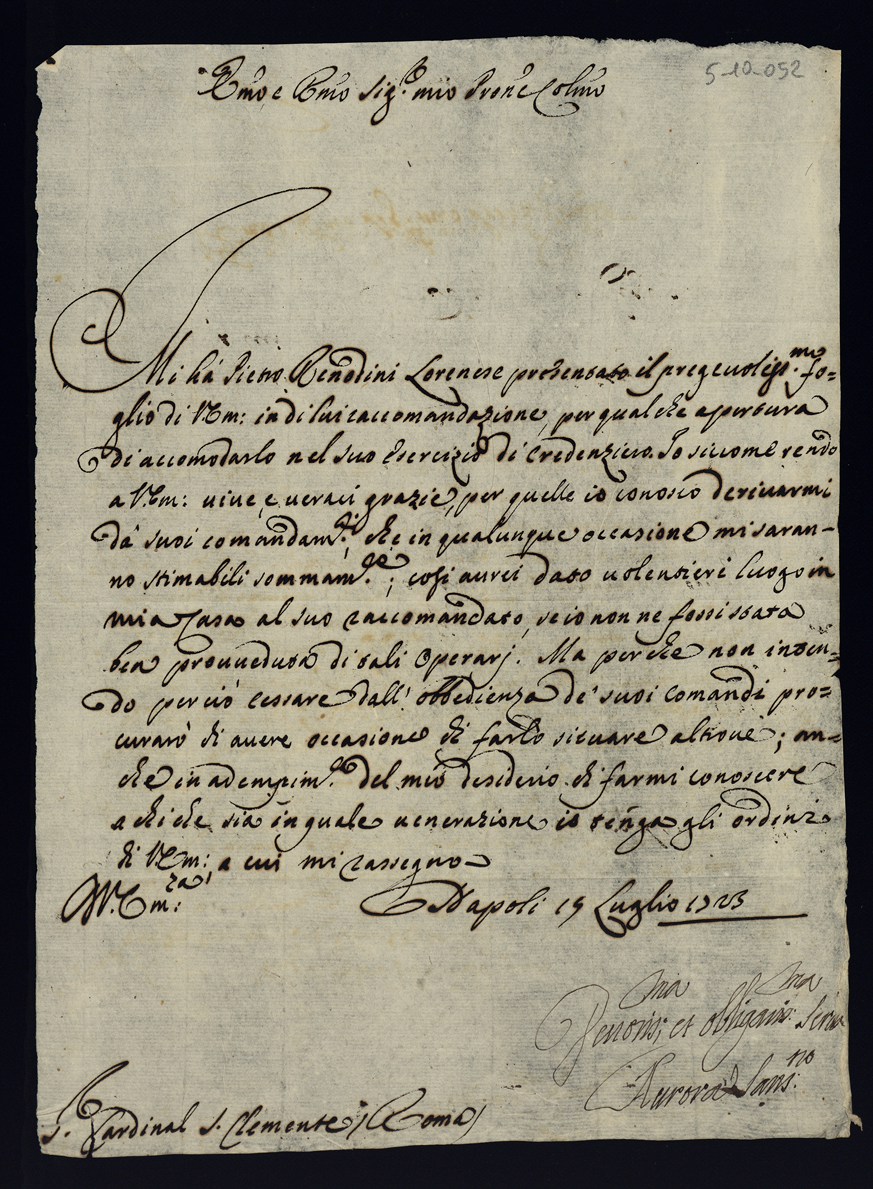 5-10-052
Emo e Rmo Sig.r mio Prone Colmo
Mi hà Pietro Renodini Lorenese presentato il pregevoliss.mo fo=
glio di VEm: in di lui raccomandazione, per qualche apertura
di accomodarlo nel suo esercizio di Credenziero. Io siccome rendo
a VEm: vive, e veraci grazie, per quelle io conosco derivarmi
da' suoi comandam.ti, che in qualunque occasione mi saran=
no stimabili sommam.te; cosi avrei dato volentieri luogo in
mia Casa al suo raccomandato, se io non ne fossi stata
ben provveduta di tali Operarj. Ma perche non inten=
do perciò cessare dall' obbedienza de' suoi Comandi pro=
curarò di avere occasione di farlo situare altrove; an=
che in adempim.to del mio desiderio di farmi conoscere
a chi che sia in quale venerazione io tenga gli ordini
di VEm: a cui mi rassegno
V.Em:za
Napoli 19 Luglio 1723
Devotis:ma et obligatis:ma Serva
Aurora Sans:no
S. Cardinal S. Clemente / Roma /